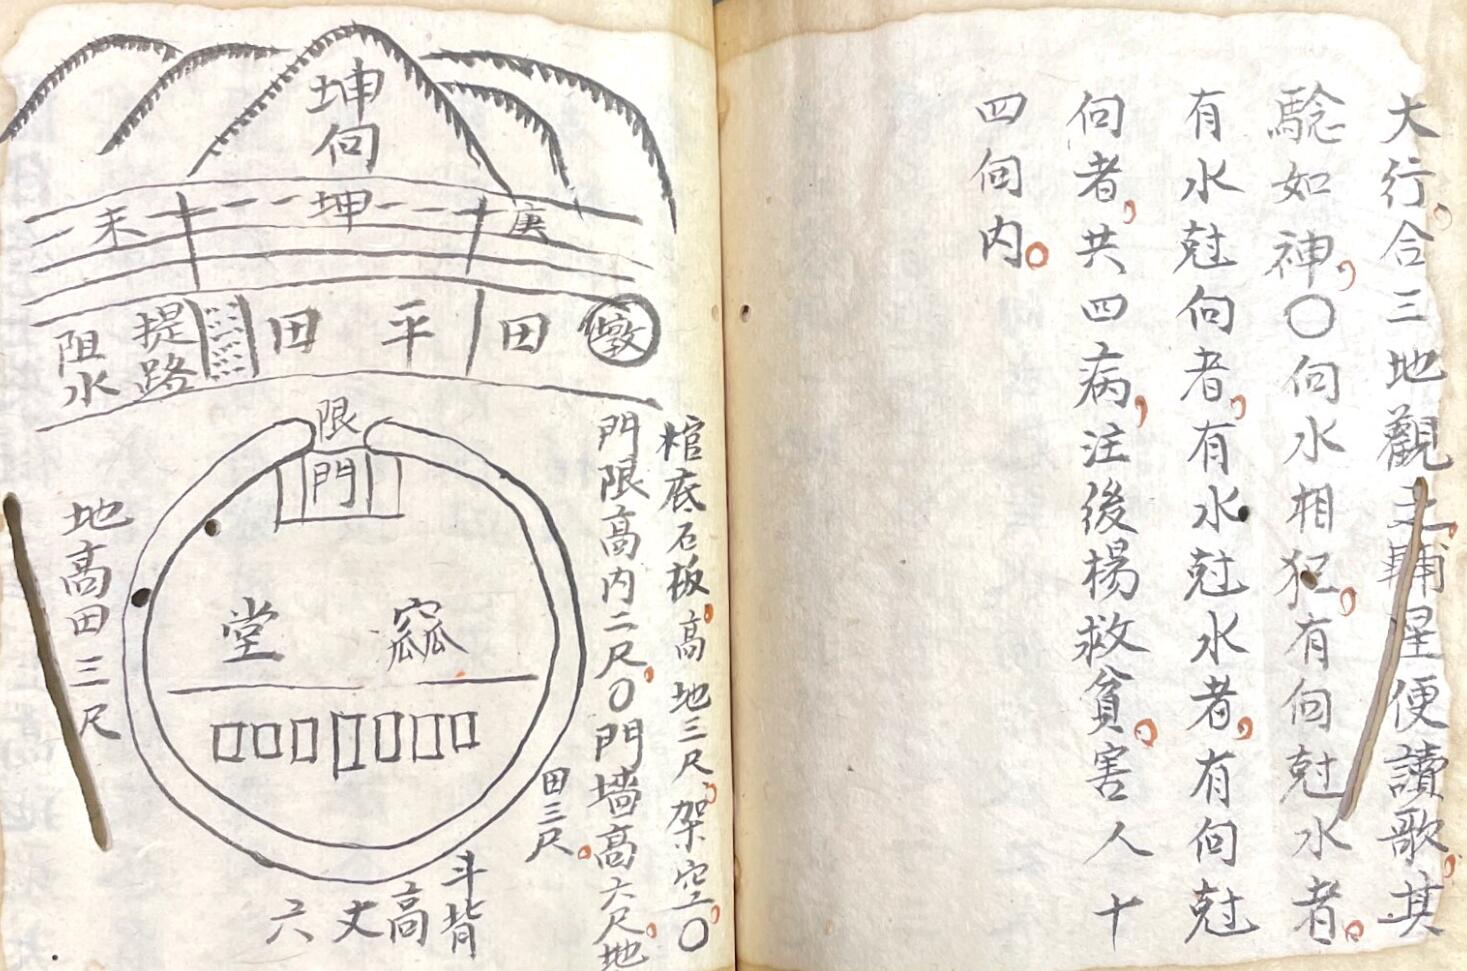 大行合三地觀之輔星便讀歌其
騐如神〇向水相犯有向尅水者
有水尅向者有水尅水者有向尅
向者共四病注後楊救貧害人十
四向内
棺底石板高地三尺架空〇
門限高内二尺〇門墻高六尺地
田三尺
坤向
庚
坤
未
墩
田
平
田
提路
阻水
限
門
窳
堂
地高田三尺
斗背
高
丈
六